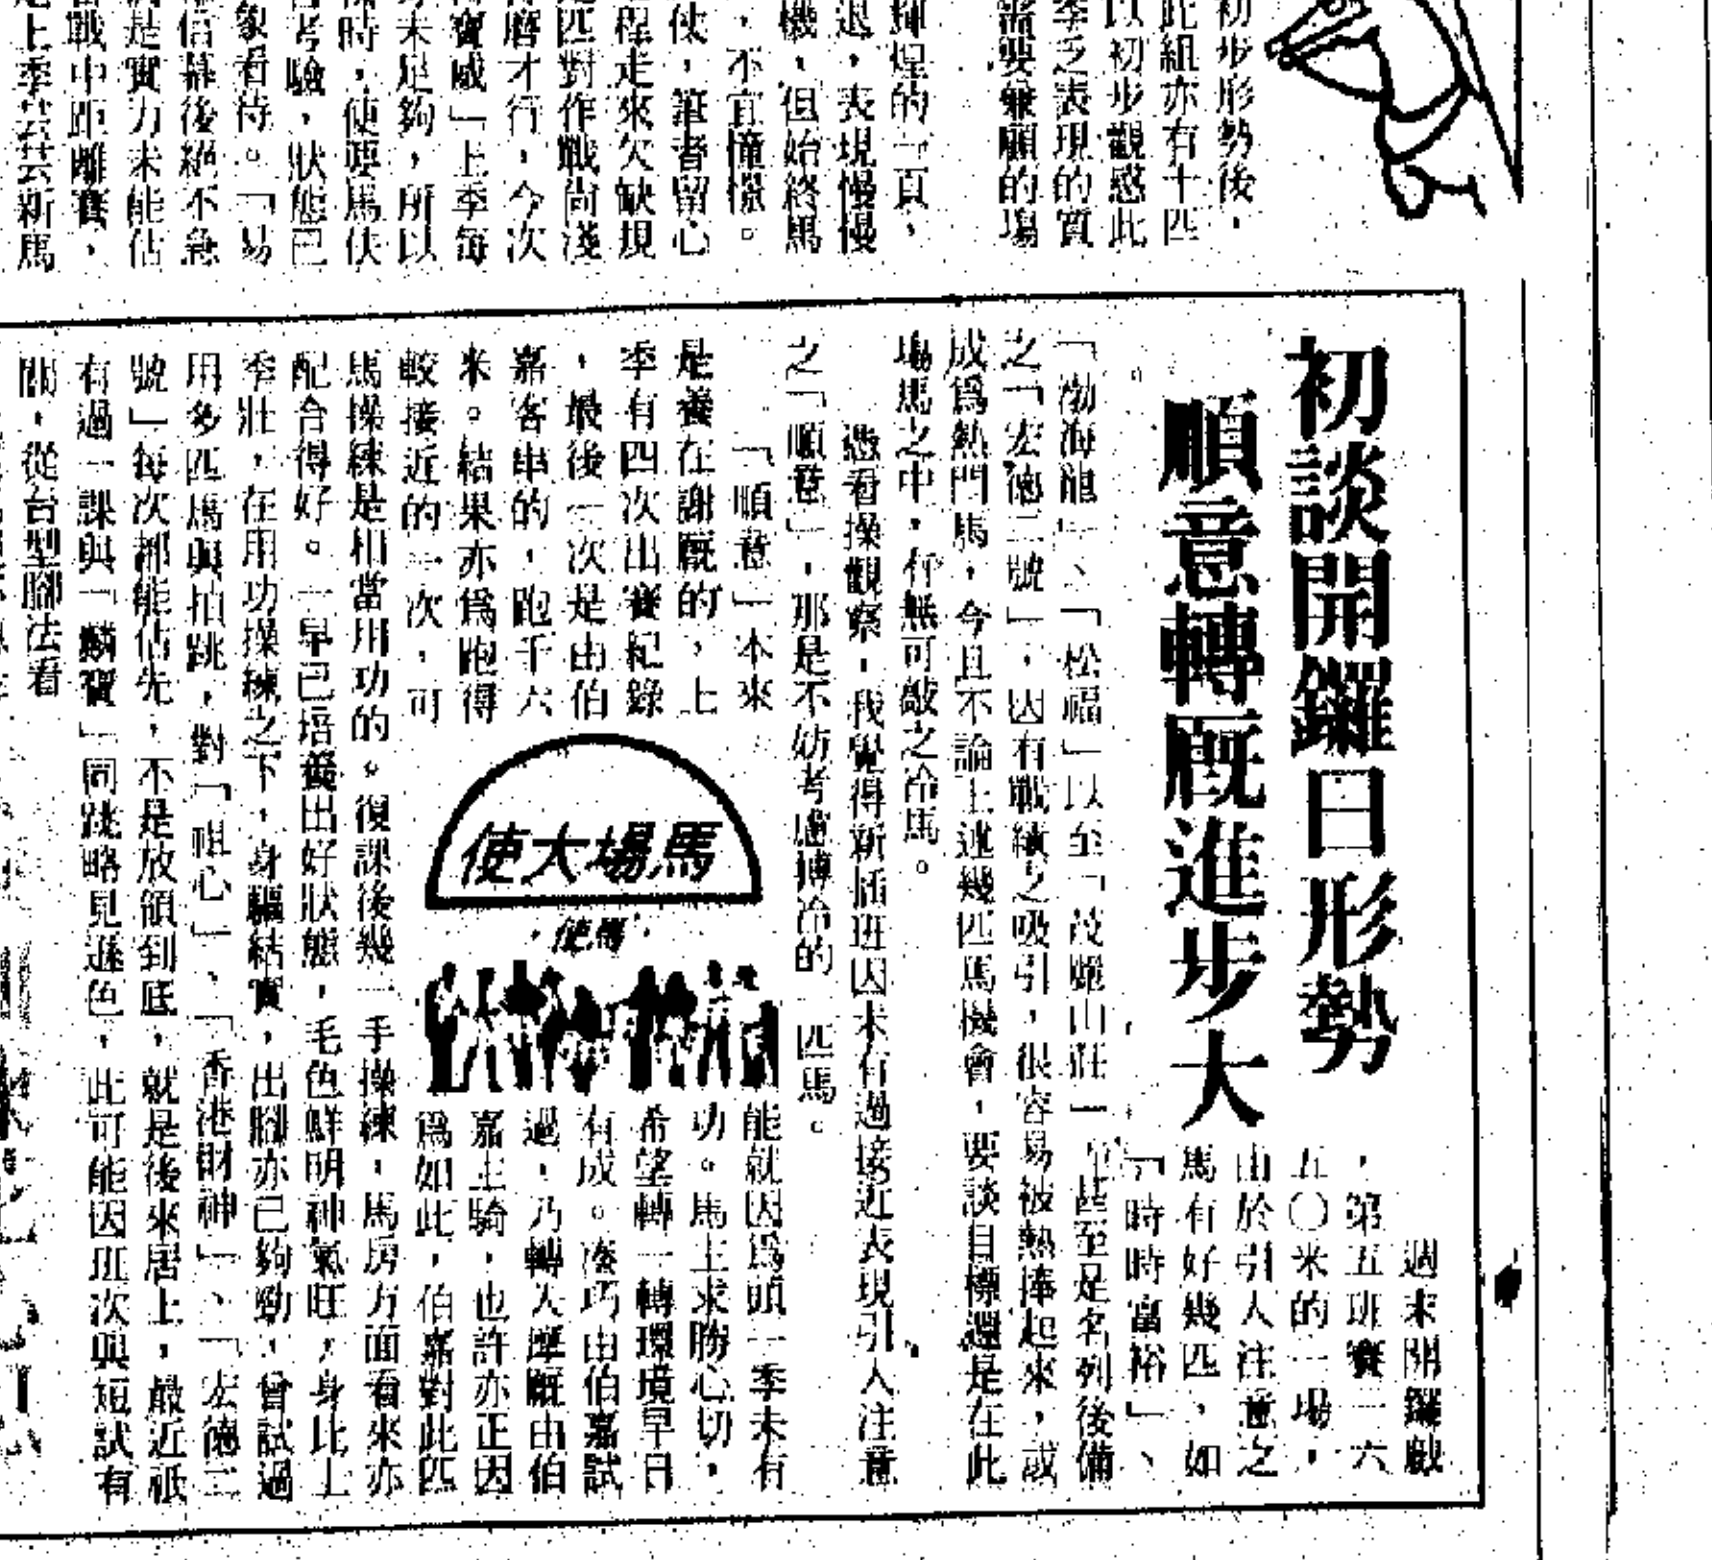 初步形勢後，
此組亦有十四
以初步觀感此
季乏表現的質
需要兼顧的場
輝煌的一頁，
退，表現慢慢
機，但始終馬
，不宜憧憬。
伕，筆者留心
程走來欠缺現
匹對作戰尚淺
磨才行，今次
寶威」上季每
未足夠，所以
時，便要馬伕
考驗，狀態已
象看待。「易
信幕後絕不急
是實力未能估
戰中距離賽，
上季芸芸新馬
初談開鑼日形勢
順意轉厩進步大
週末開鑼獻
，第五班賽一六
五〇米的一場，
由於引人注意之
馬有好幾匹，如
「時時富裕」、
「渤海龍」、「松福」以至「茂麗山莊」，甚至是名列後備
之「宏德二號」，因有戰績之吸引，很容易被熱捧起來，或
成爲熱門馬，今且不論上述幾匹馬機會，要談目標還是在此
場馬之中，有無可敲之冷馬。
憑看操觀察，我覺得新插班因未有過接近表現引人注意
之「順意」，那是不妨考慮搏冷的一匹馬。
「順意」本來
是養在謝厩的，上
季有四次出賽紀錄
，最後一次是由伯
嘉客串的，跑千六
米。結果亦爲跑得
較接近的一次，可
馬塲大使
馬使
能就因爲頭一季未有
功。馬主求勝心切，
希望轉一轉環境早日
有成。湊巧由伯嘉試
過，乃轉入摩厩由伯
嘉主騎，也許亦正因
爲如此，伯嘉對此匹
馬操練是相當用功的。復課後幾一手操練，馬房方面看來亦
配合得好。一早已培養出好狀態，毛色鮮明神氣旺，身比上
季壯，在用功操練之下，身軀結實，出腳亦已夠勁，會試過
用多匹馬與拍跳，對「祖心」、「香港財神」、「宏德三
號」每次都能佔先，不是放領到底，就是後來居上，最近祇
有過一課與「麟寶」同跳略見遜色，此可能因班次與短試有
關，從台型腳法看